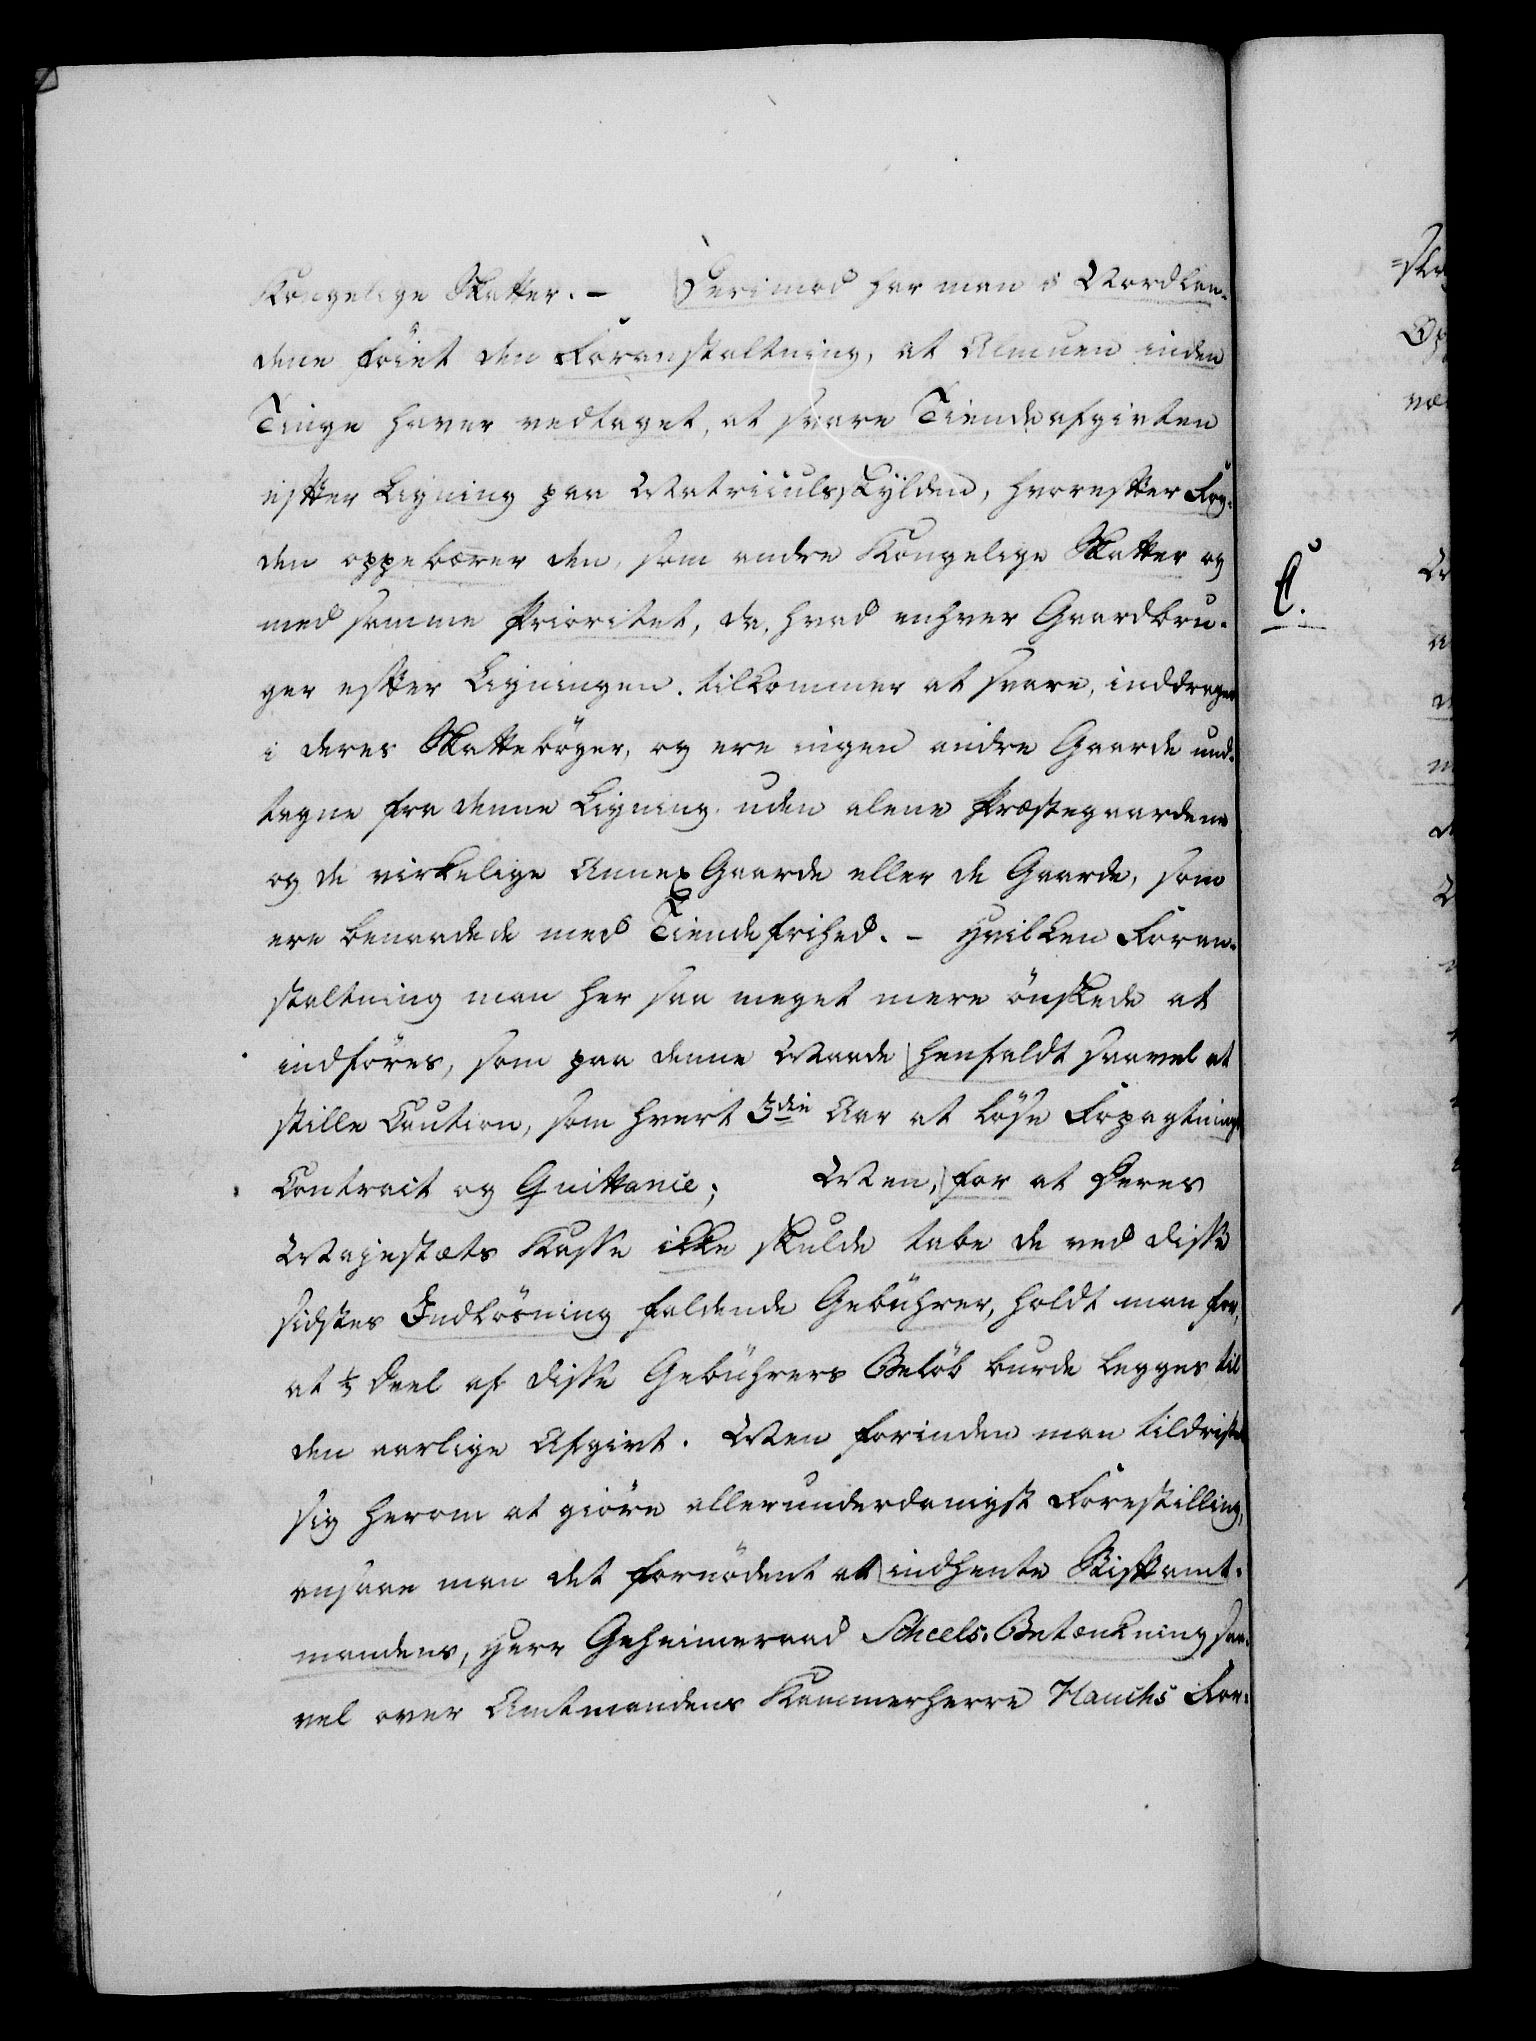 Kongelige Skatter. – Derimod har man i Nordlan-
dene föiet den Foranstaltning, at Almuen inden
Tinge haver vedtaget, at svare Tiendeafgivten
efter Ligning paa Matriculs Skylden, hvorefter Fog-
den oppebærer den, som andre Kongelige Skatter og
med samme Prioritet, da, hvad enhver Gaardbru-
ger efter Ligningen tilkommer at svare, inddrages
i deres Skattebøger, og ere ingen andre Gaarde und-
tagne fra denne Ligning uden alene Præstegaardene
og de virkelige Annex Gaarde eller de Gaarde, som
ere benaadede med Tiendefrihed. – Hvilken Foran-
staltning man her saa meget mere önskede at
indföres, som paa denne Maade henfaldt saavel at
stille Caution, som hvert 3die Aar at löse Forpagtnings
Contract og Quittance; Men, for at Deres
Majestæts Kasse ikke skulde tabe de ved disse
sidstes Indlösning faldende Gebührer, holdt man for,
at ⅓ Deel af disse Gebührers Belöb burde legges til
den aarlige Afgivt. Men forinden man tildristede
sig herom at giöre allerunderdanigst Forestilling,
ansaae man det fornödent at indhente Stiftamt-
mandens, Herr Geheimeraad Scheels Betænkning saa-
vel over Amtmandens Kammerherre Hauchs For-
C.